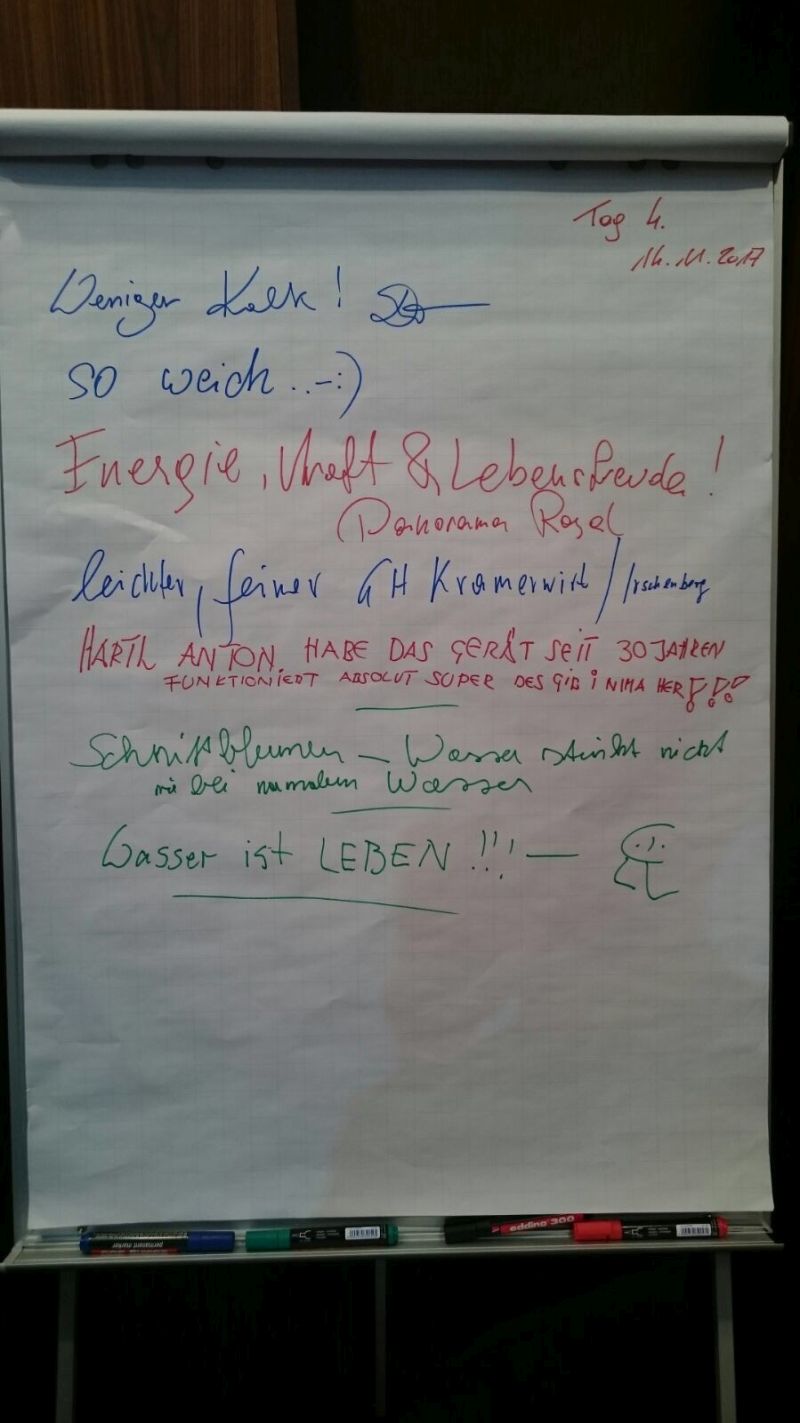 Tag 4.
14.11.2017
Weniger Kalk!
so weich..-:)
Energie, Kraft & Lebensfreude!
(Panorama Royal
leichter, feiner GH Kramerwirt/Irschenberg
HARTL ANTON. HABE DAS GERÄT SEIT 30 JAHREN
FUNKTIONIERT ABSOLUT SUPER DES GIB I NIMA HER!!!
Schnittblumen – Wasser stinkt nicht
wie bei normalem Wasser
Wasser ist LEBEN !!! —
permanent marker
edding 300